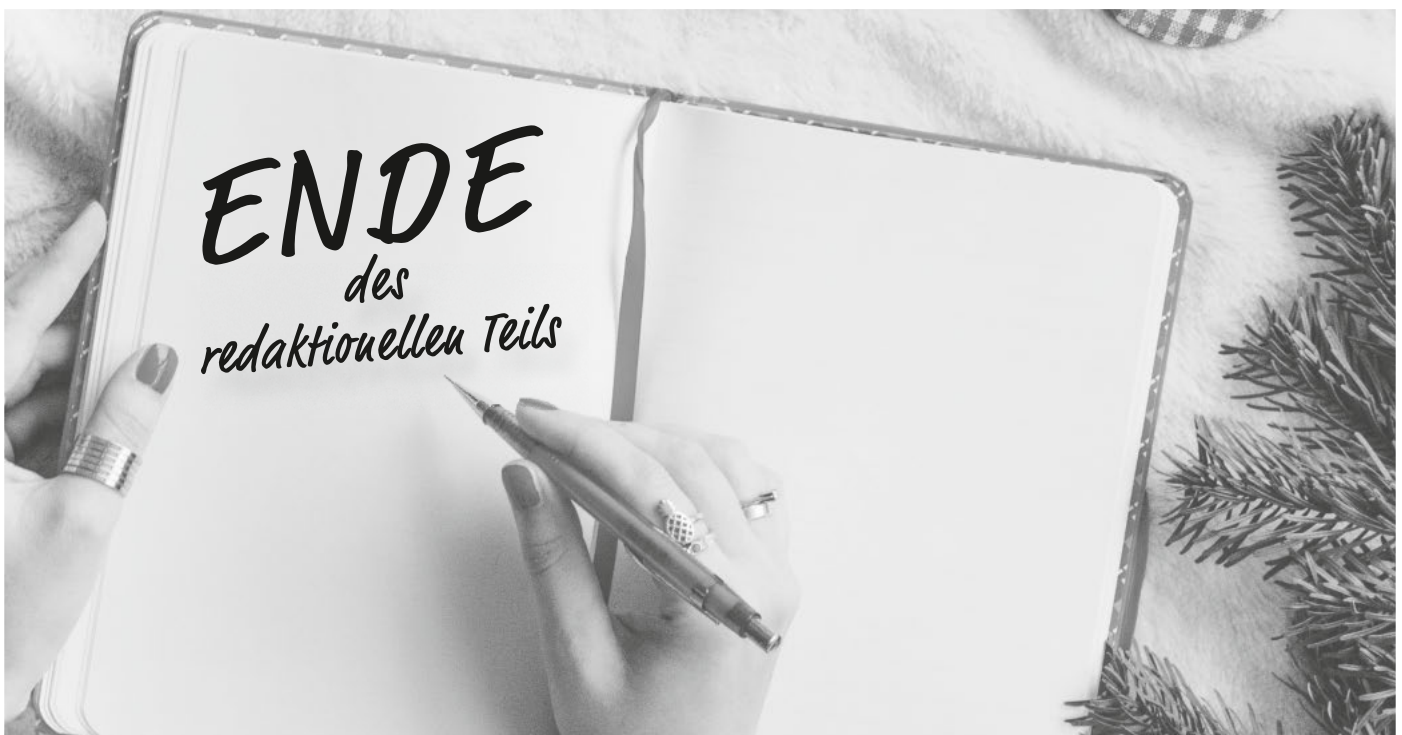 ENDE
des
redaktionellen Teils